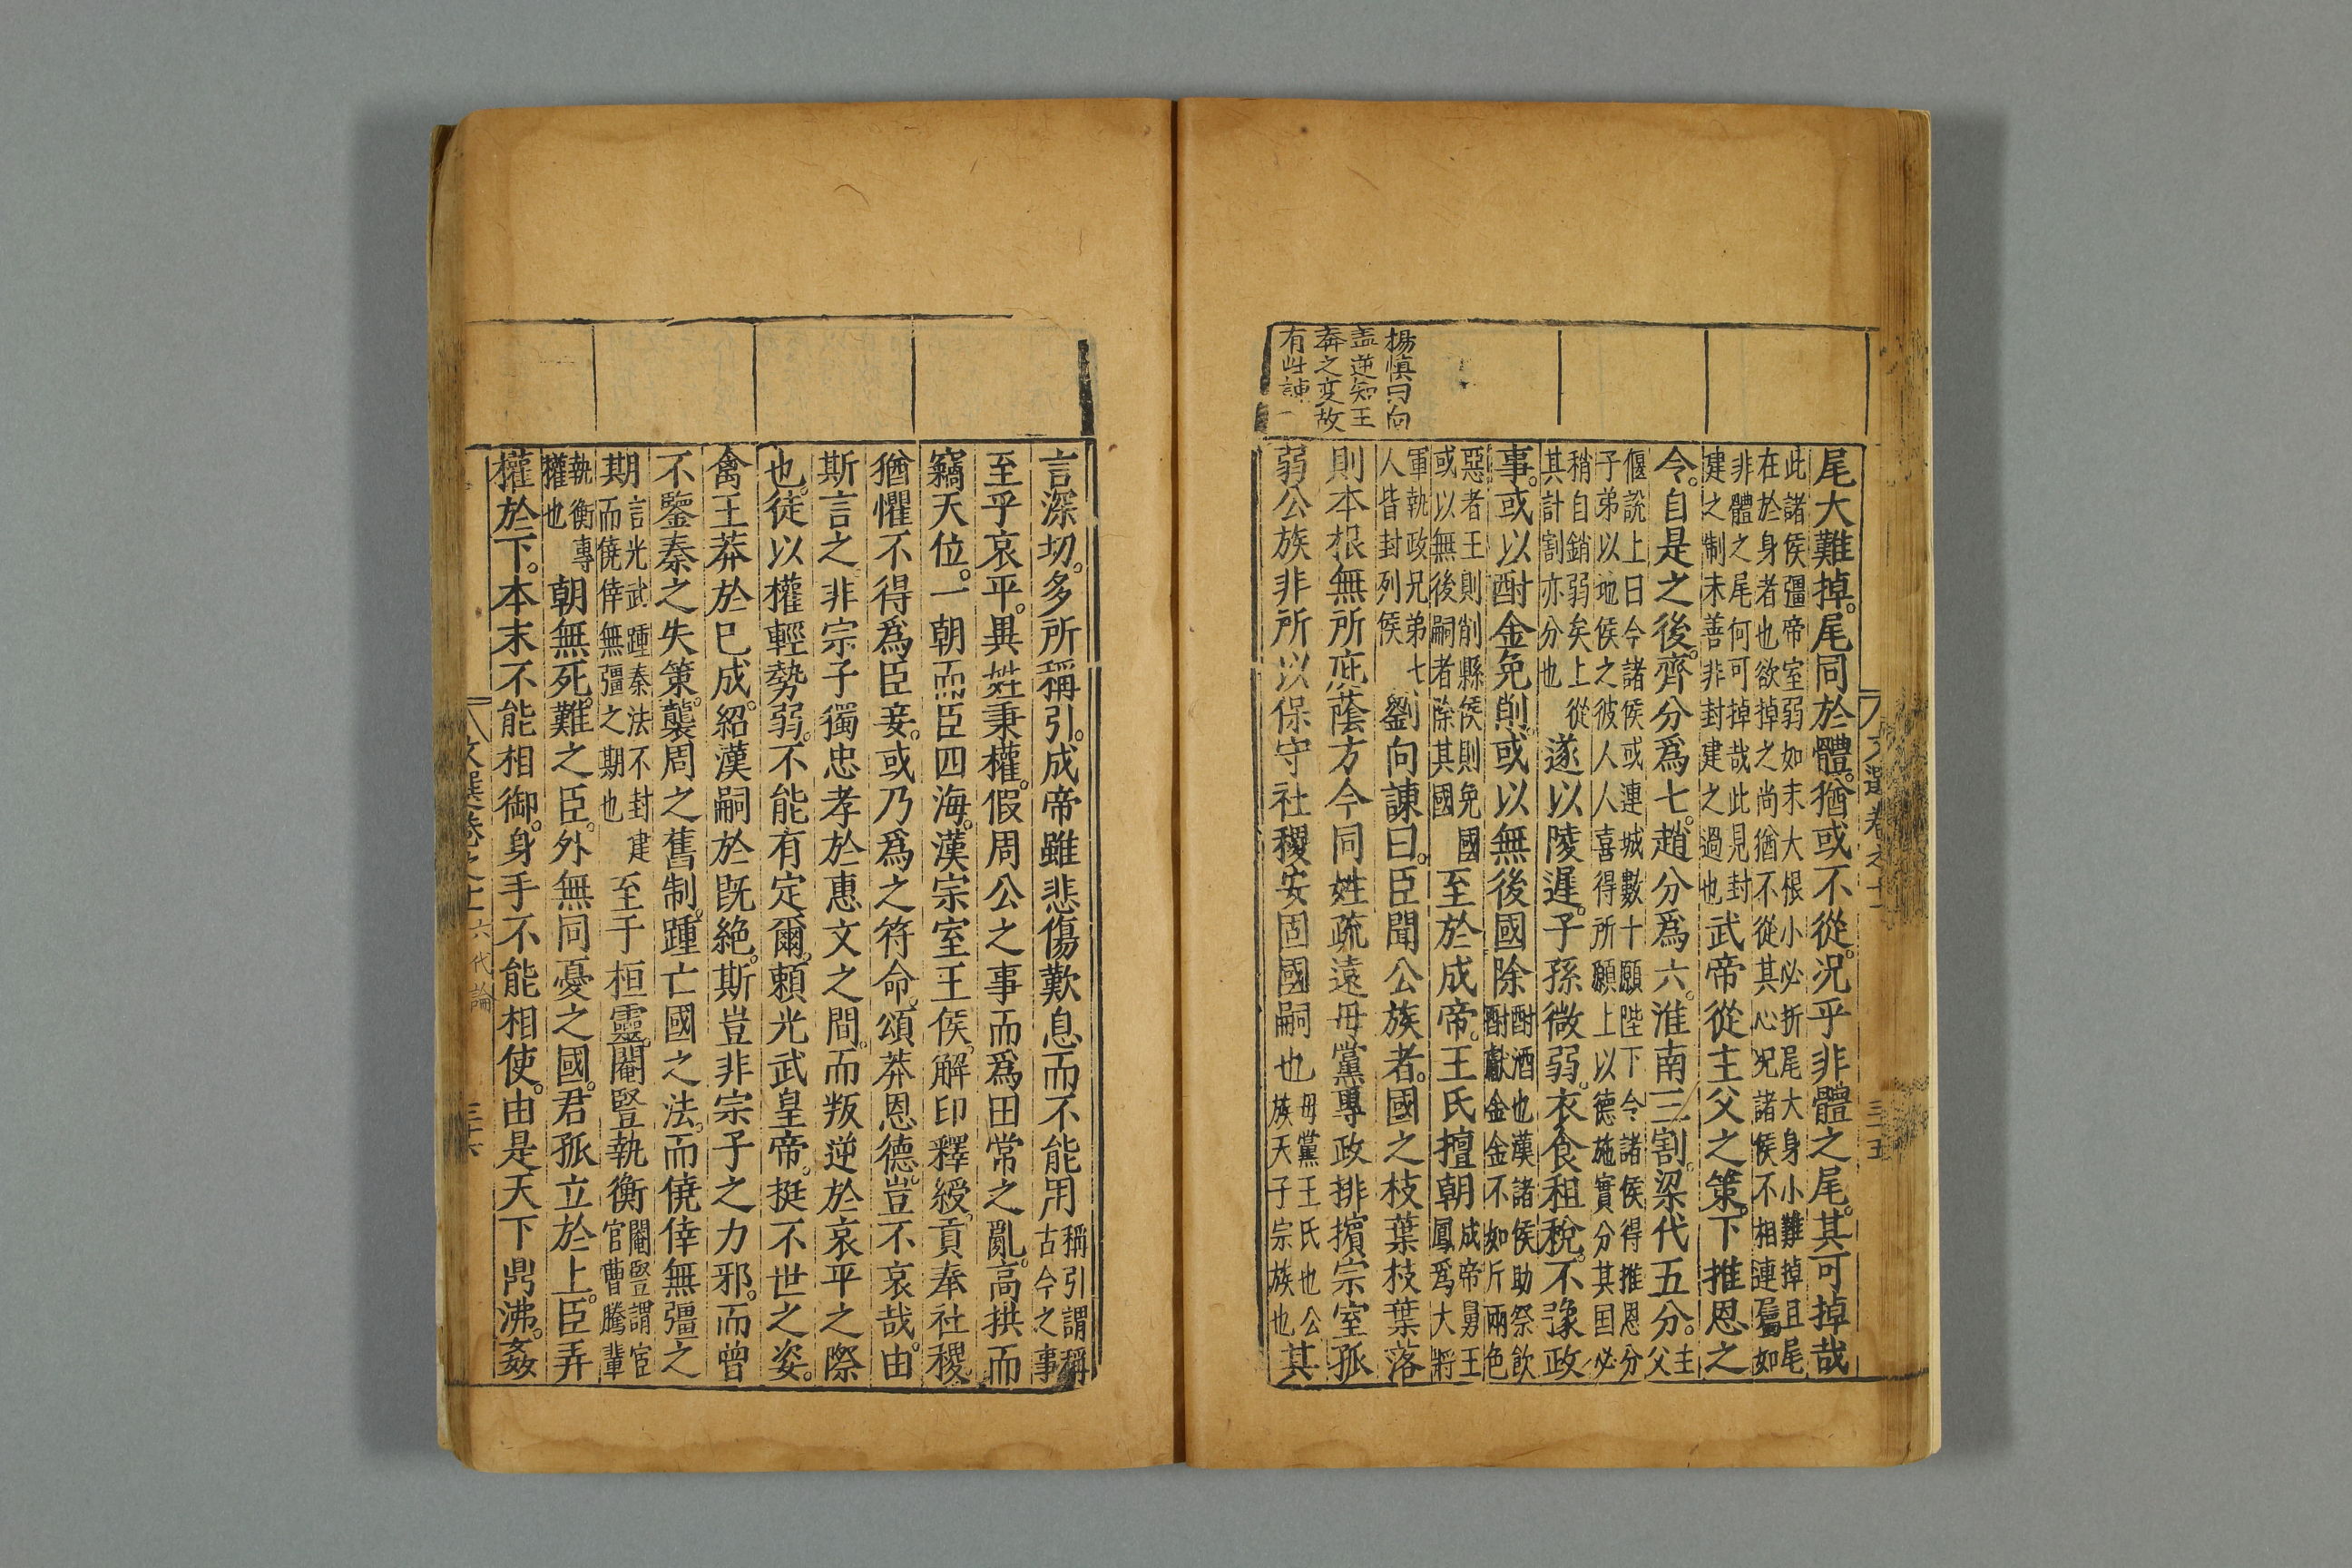 尾大難掉。尾同於體。猶或不從。况乎非體之尾。其可掉哉
此諸侯彊帝室弱如末大根小必折尾大身小難掉且尾
在於身者也欲掉之尚猶不從其心况諸侯不相連屬如
非體之尾何可掉哉此見封
建之制未善非封建之過也
武帝從主父之策。下推恩之
令。自是之後。齊分爲七。趙分爲六。淮南三割。梁代五分。
主
父
偃說上曰今諸侯或連城數十願陛下令諸侯得推恩分
子弟以地侯之彼人人喜得所願上以德施實分其国必
稍自銷弱矣上從
其計割亦分也
遂以陵遲。子孫微弱。衣食租稅。不豫政
事。或以酎金免削。或以無後國除
酎酒也漢諸侯助祭飲
酎獻金金不如斤兩色
惡者王則削縣侯則免國
或以無後嗣者除其國
至於成帝。王氏擅朝
成帝舅王
鳳爲大將
軍執政兄弟七
人皆封列侯
劉向諫曰。臣聞公族者。國之枝葉枝葉落
則本根無所庇蔭方今同姓疏遠母黨專政排擯宗室孤
弱公族非所以保守社稷安固國嗣也
母黨王氏也公
族天子宗族也
其
楊慎曰向
盖逆知王
莽之变故
有此諫
文選卷之十
三十五
言深切。多所稱引。成帝雖悲傷歎息而不能用
稱引謂稱
古今之事
至乎哀平。異姓秉權。假周公之事而爲田常之亂。高拱而
竊天位。一朝而臣四海。漢宗室王侯。解印釋綬。貢奉社稷。
猶懼不得爲臣妾。或乃爲之符命。頌莽恩德。豈不哀哉。由
斯言之。非宗子獨忠孝於惠文之間。而叛逆於哀平之際
也。徒以權輕勢弱。不能有定爾。頼光武皇帝。挺不世之姿。
禽王莽於已成。紹漢嗣於既絶。斯豈非宗子之力邪。而曾
不鑒秦之失策。襲周之舊制。踵亡國之法。而僥倖無彊之
期
言光武踵秦法不封建
而僥倖無彊之期也
至于桓靈。閹豎執衡
閹豎謂宦
官曹騰輩
執衡專
權也
朝無死難之臣。外無同憂之國。君孤立於上。臣弄
權於下。本末不能相御。身手不能相使。由是天下鼎沸。姦
文選卷之十 六代論
三十六